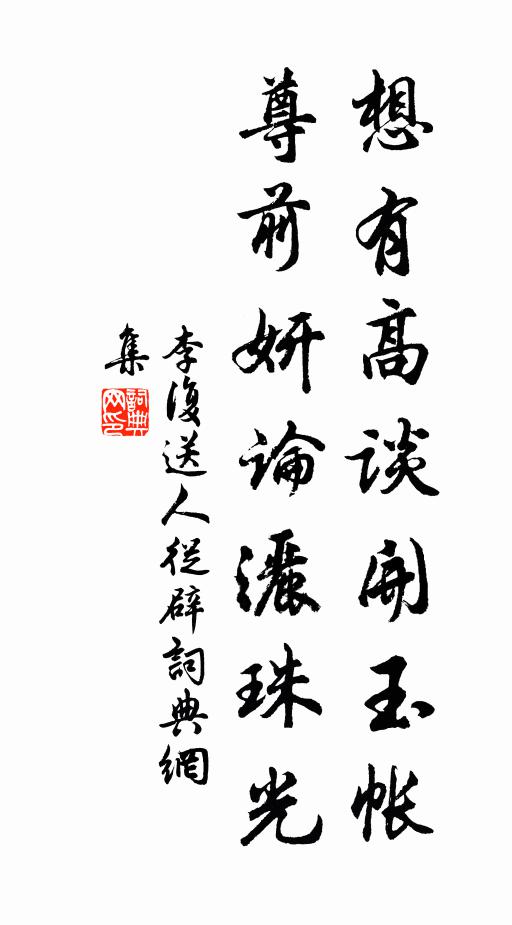 想有高談開玉帳
尊前妍論灑珠光
李復送人從辟詞典網
集
詞典
网印